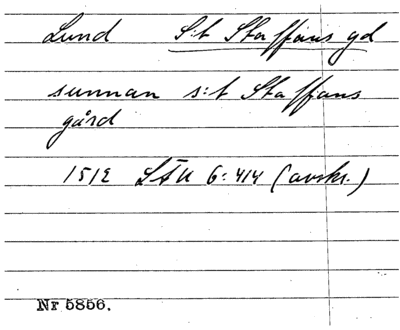 Lund S:t Staffans gd
sunnan s:t Staffans
gård
1512 LÄU 6:414 (avskr.)
NR 5856.